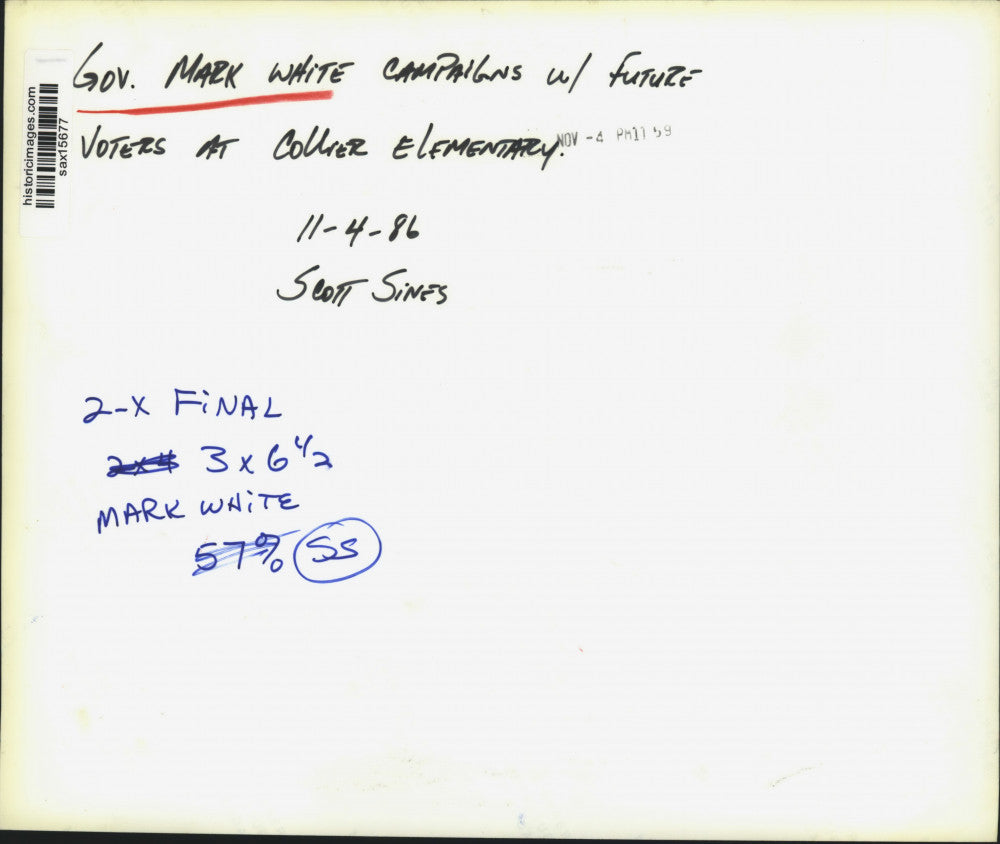 GOV. MARK WHITE CAMPAIGNS W/ FUTURE
VOTERS AT COLLIER ELEMENTARY.
NOV -4 PM11 59
11-4-86
SCOTT SINES
2-X FINAL
2x4 3x6 1/2
MARK WHITE
57% SS
historicimages.com
sax15677